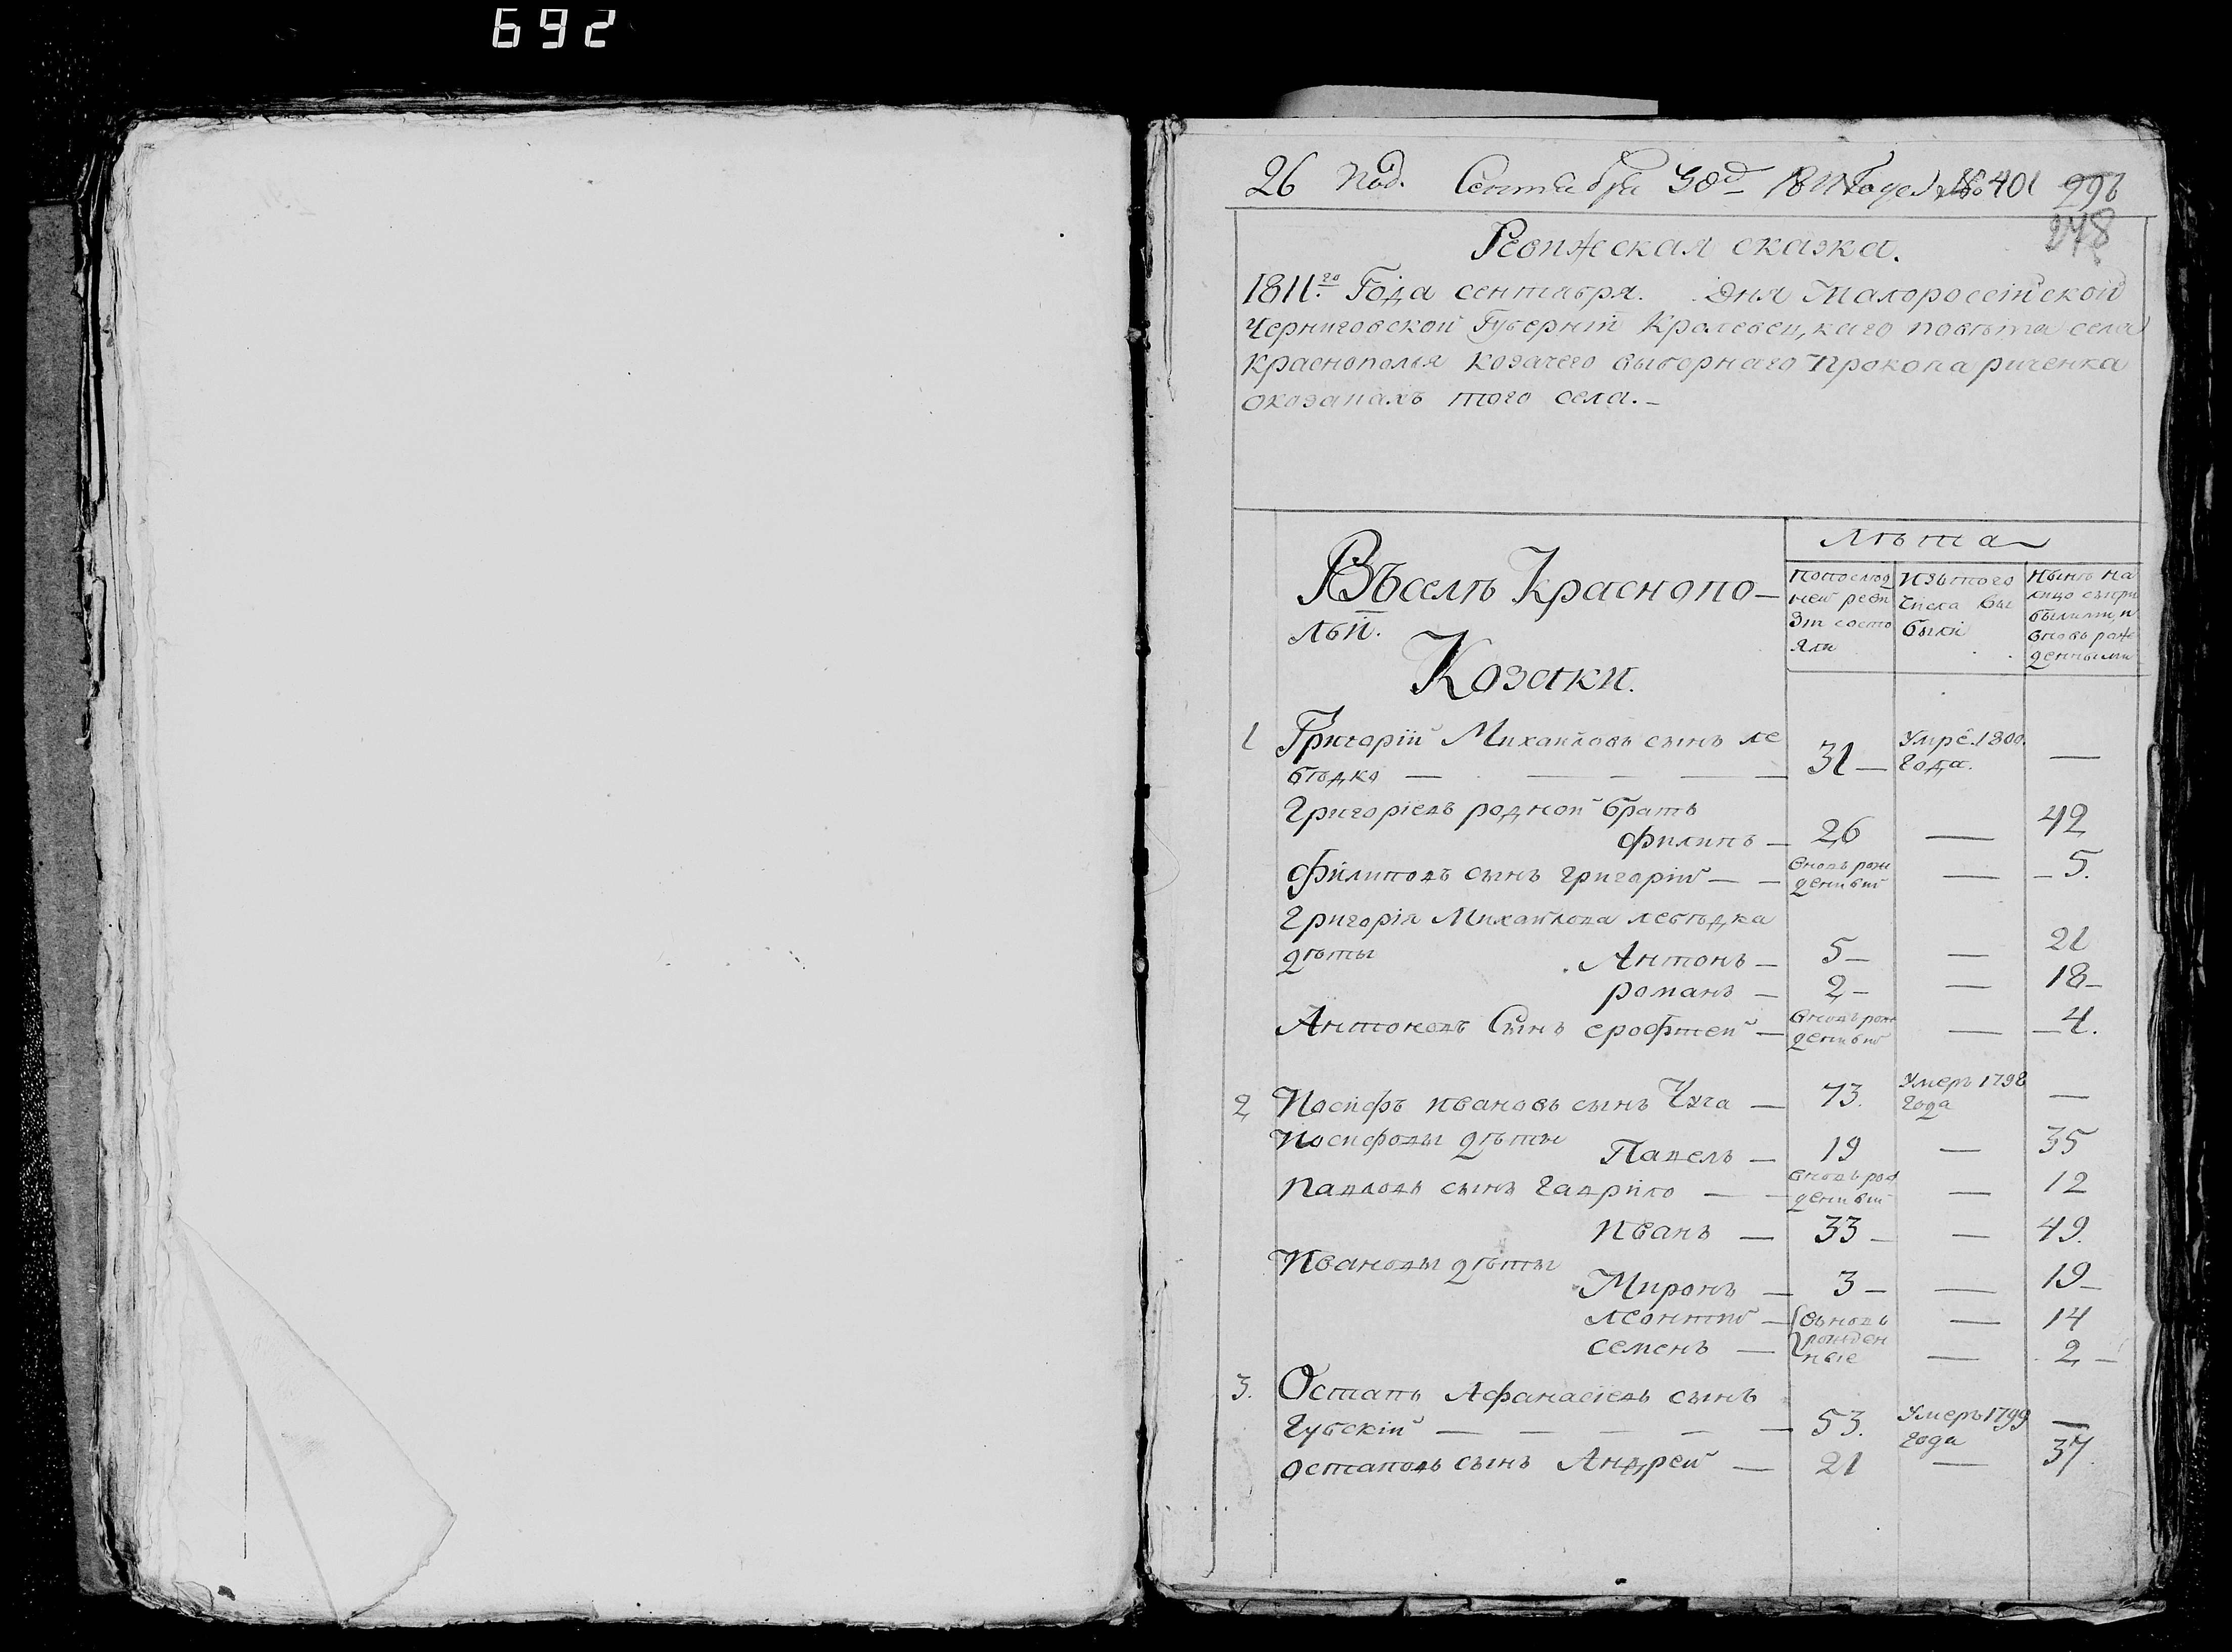 692
26 Под. Сентября 30д 1811 Года № 401 296
248
Ревижская сказка.
1811го Года сентября. Дня Малоросейской
Черниговской Губернїй Кролевец,каго повѣта села
Краснополья Козачего выборнаго Прокопа риченка
окозаках того села.
Въселѣ Краснопо-
льй.
Козаки.
Лѣта
Попослѣд
ней реви
зіи состо
яли
Изътого
числа вы
были
Нынѣ на
лицо съпри
былыми, и
вновь раж
денными
1 Григорій Михайловъ сынъ ле
бѣдко — 31 — Умре 1800. года. —
Григоріевъ родной братъ
Филипъ — 26 — 42
Филиповъ сынъ Григорій — вновь рож денный — 5.
Григорія Михайлова лебѣдка
дѣты Антонъ — 5 — 21
романъ — 2 — 18
Антоновъ Сынъ ерофтей — вновь рож денный — 4.
2 Иосифъ ивановъ сынъ — 73. Умеръ 1798 года —
Иосифовы дѣты Павелъ — 19 — 35
Павловъ сынъ Гаврило — вновь рож денный — 12
Иванъ — 33 — 49.
Ивановы дѣты
Миронъ — 3 — 19
леонтій — вьновь — 14
семенъ — рожден ные — 2
3. Остапъ Афанасіевъ сынъ
Губскій — 53. Умеръ 1799 года —
остаповъ сынъ Андрей — 21 — 37.